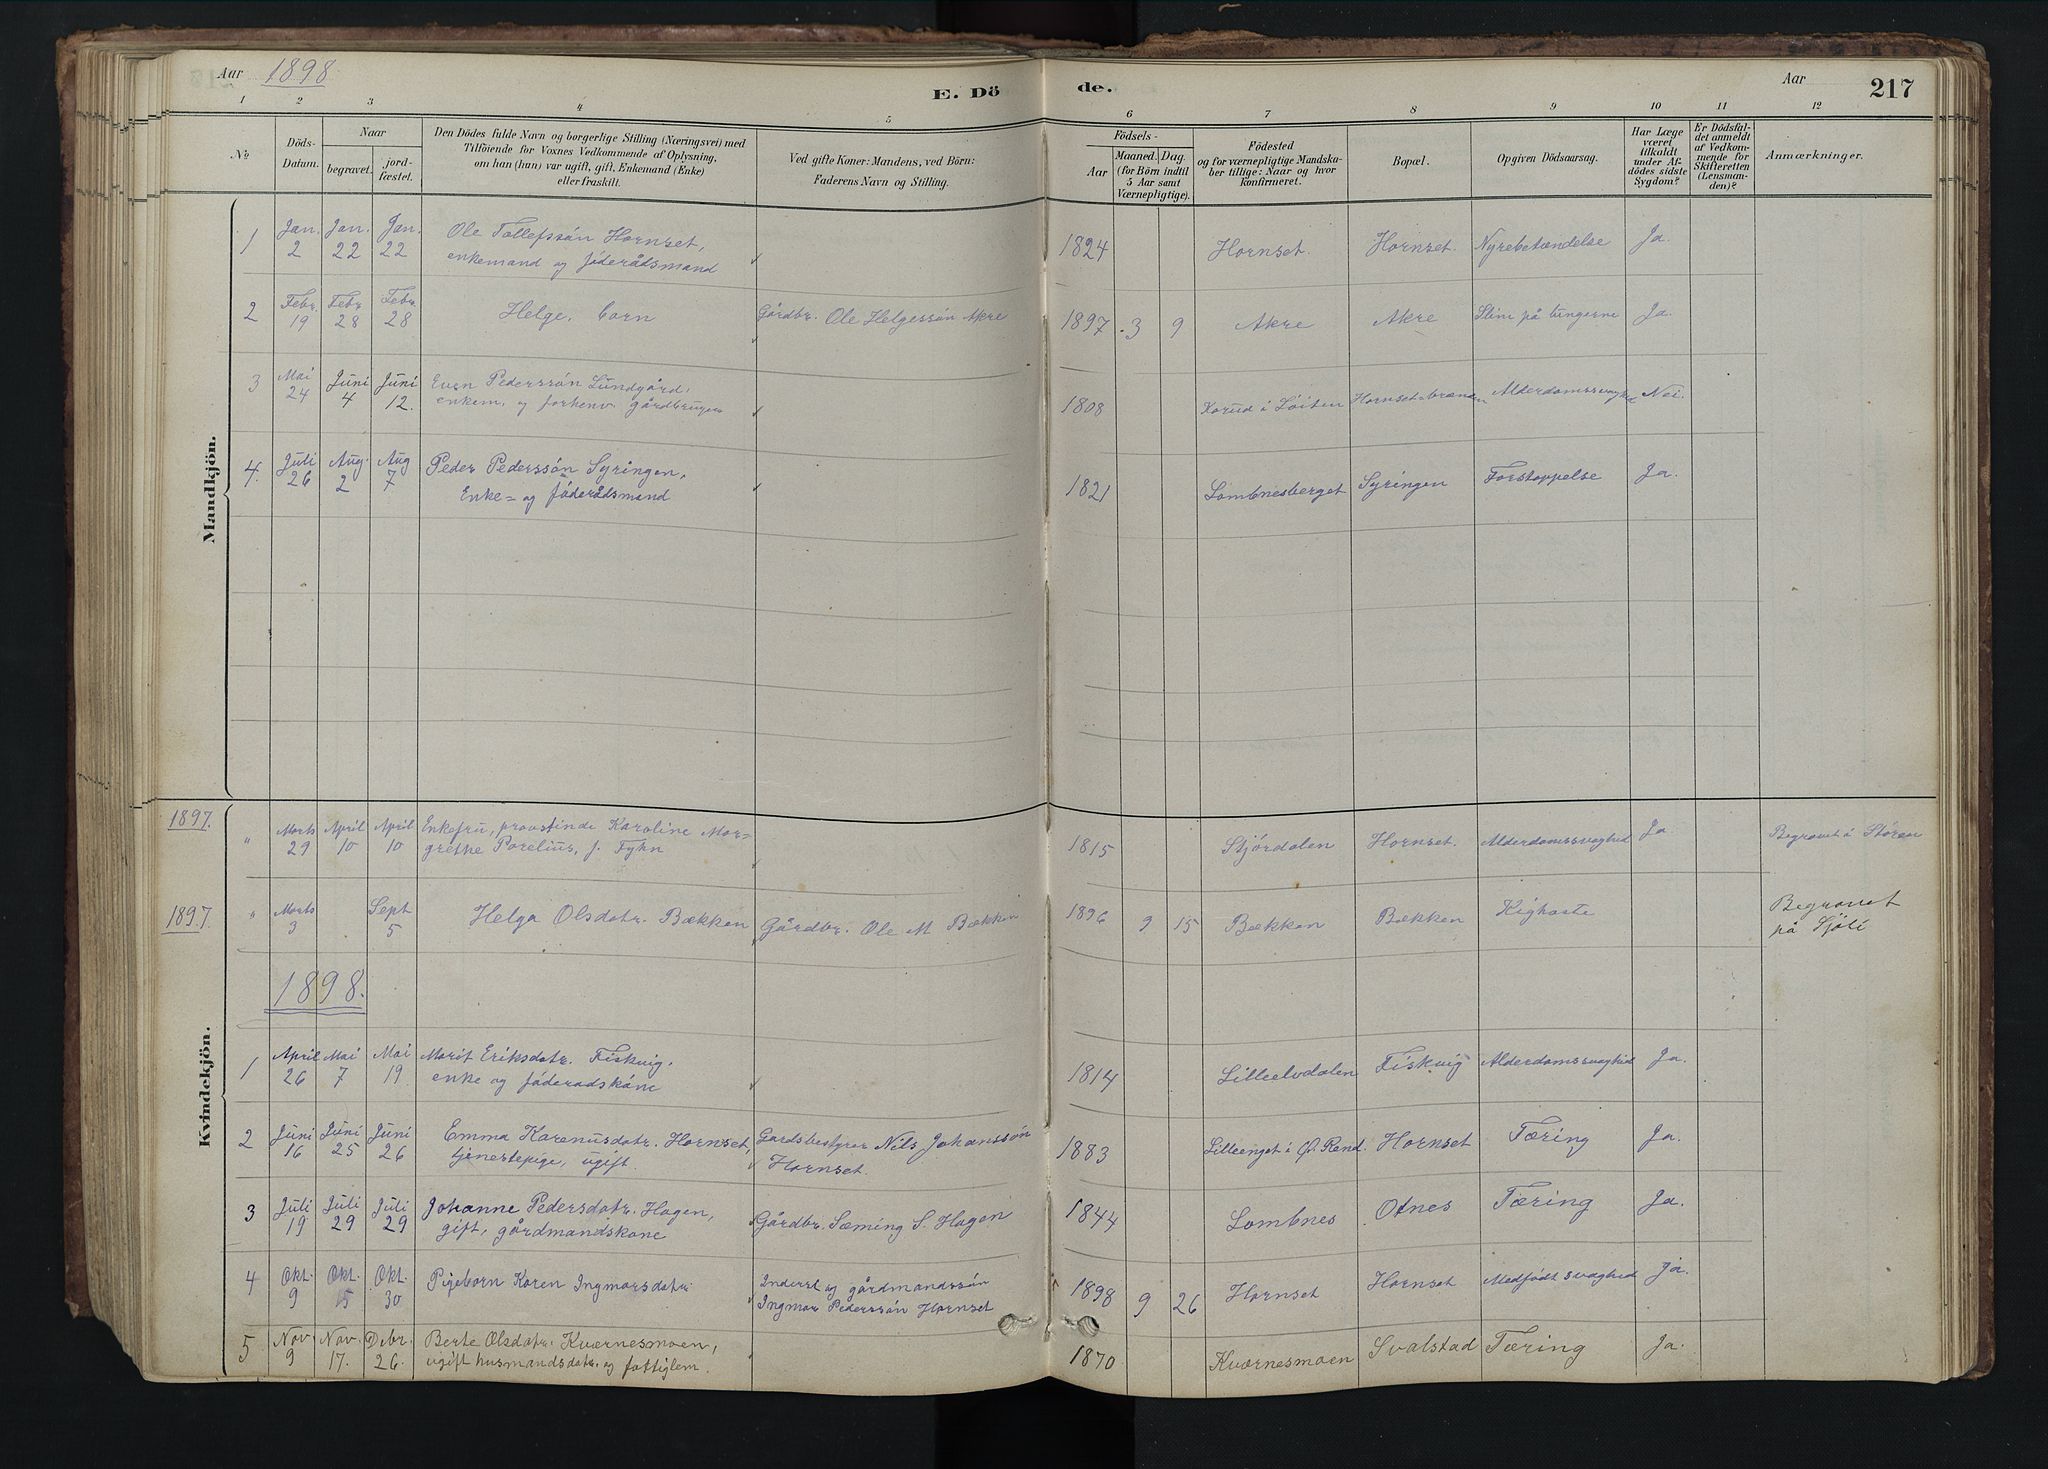 Aar 1898.
E. Dö
de.
Aar
217
1 2 3 4 5 6 7 8 9 10 11 12
No
Döds-Datum.
Naar
begravet.
jord-fæstet.
Den Dödes fulde Navn og borgerlige Stilling (Næringsvei) med
Tilföiende for Voxnes Vedkommende af Oplysning,
om han (hun) var ugift, gift, Enkemand (Enke)
eller fraskilt.
Ved gifte Koner: Mandens, ved Börn:
Faderens Navn og Stilling.
Födsels-
Aar
Maaned. Dag.
(for Börn indtil
5 Aar samt
Værnepligtige).
Födested
og for værnepligtige Mandska-
ber tillige: Naar og hvor
konfirmeret.
Bopæl.
Opgiven Dödsaarsag.
Har Læge
været
tilkaldt
under Af-
dödes sidste
Sygdom?
Er Dödsfal-
det anmeldt
af Vedkom-
mende for
Skifteretten
(Lensman-
den)?
Anmærkninger.
Mandkjön.
1 Jan. 2 Jan. 22 Jan. 22 Ole Tollefssön Hornset, 1824 Hornset. Hornset. Nyrebetændelse Ja.
enkemand og föderådsmand
2 Febr. 19 Febr 28 Febr. 28 Helge, barn Gårdbr. Ole Helgessön Akre 1897 3 9 Akre Akre Slim på lungerne Ja.
3 Mai 24 Juni 4 Juni 12. Even Pederssön Lundgård, 1808 Korud i Löiten Hornset-brænden Alderdomssvaghed Nei.
enkem. og forhenv. gårdbruger
4. Juli 26 Aug. 2 Aug 7 Peder Pederssön Syringen, 1821 Lombnesberget Syringen Forstoppelse Ja.
Enke= og föderådsmand
Kvindekjön.
1897. " Marts 29 April 10 April 10 Enkefru, provstinde Karoline Mar- 1815 Stjördalen Hornset. Alderdomssvaghed Ja Begravet i Stören
grethe Parelius, f. Tyhn
1897. " Marts 3 Sept 5 Helga Olsdatr. Bækken Gårdbr. Ole M Bækken 1896 9 15 Bækken Bækken Kighoste Begravet
på Sjöli
1898.
1 April 26 Mai 7 Mai 19 Marit Eriksdatr. Fiskvig, 1814 Lilleelvdalen Fiskvig Alderdomssvaghed Ja.
enke og föderadskone
2 Juni 16 Juni 25 Juni 26 Emma Karenusdatr. Hornset, Gårdsbestyrer Nils Johanssön 1883 Lilleenget i Ø. Rend. Hornset Tæring Ja.
tjenestepige, ugift. Hornset.
3 Juli 19 Juli 29 Juli 29 Johanne Pedersdatr. Hagen, Gårdbr. Sæming S. Hagen 1844 Lombnes Otnes Tæring Ja.
gift, gårdmandskone
4 Okt. 9 Okt. 15 Okt. 30 Pigebarn Karen Ingmarsdatr. Inderst og gårdmandssön 1898 9 26 Hornset Hornset Medfödt svaghed Ja.
Ingmar Pederssön Hornset
5 Nov 9 Nov. 17. Debr. 26. Berte Olsdatr. Kværnesmoen, 1870 Kværnesmoen Svalstad Tæring Ja.
ugift husmandsdatr. og fattiglem.